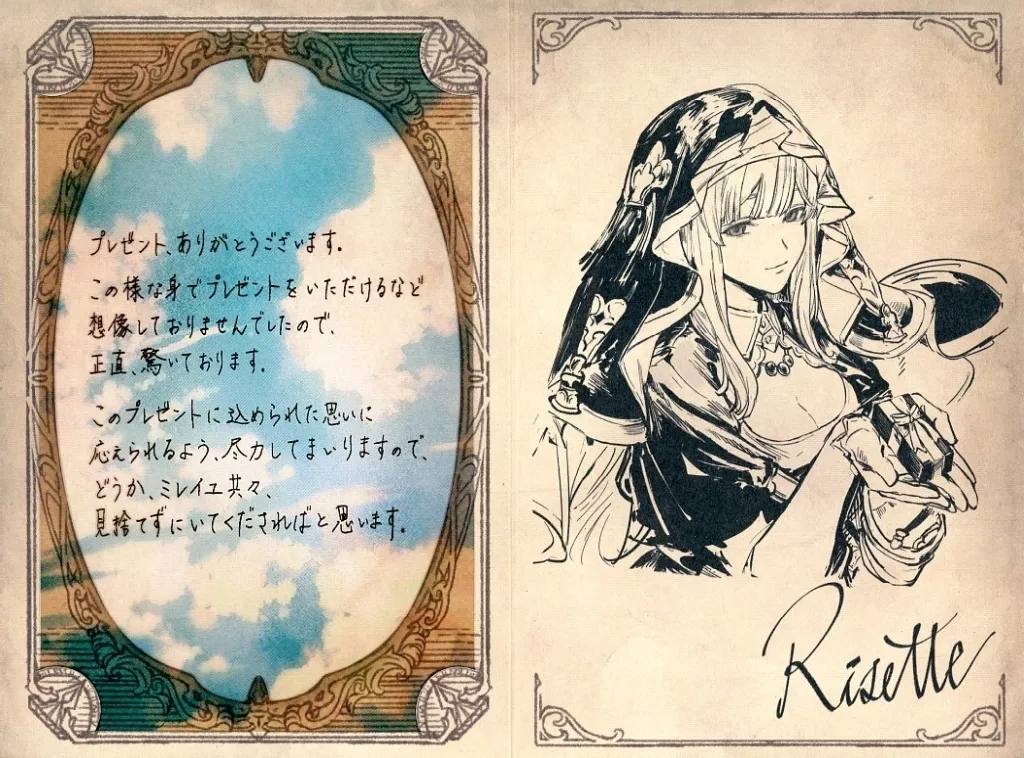 プレゼント、ありがとうございます。
この様な身でプレゼントをいただけるなど
想像しておりませんでしたので、
正直、驚いております。
このプレゼントに込められた思いに
応えられるよう、尽力してまいりますので、
どうか、ミレイユ共々、
見捨てずにいてくだされればと思います。
Risette